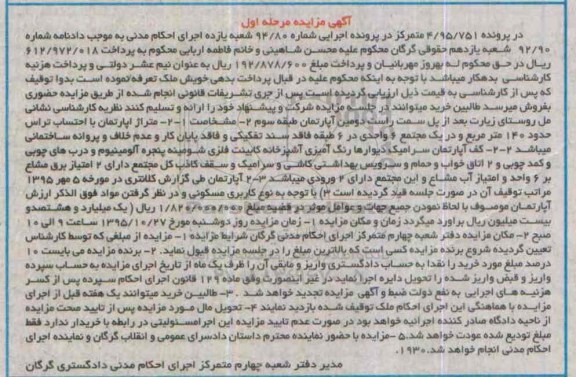 آگهی مزایده مرحله اول
در پرونده ۴/۹۵/۷۵۱ متمرکز در پرونده اجرایی شماره ۹۴/۸۰ شعبه یازده اجرای احکام مدنی به موجب دادنامه شماره
۹۲/۹۰ شعبه یازدهم حقوقی گرگان محکوم علیه محسن شاهینی و خانم فاطمه اربابی محکوم به پرداخت ۶۱۲/۹۷۲/۰۱۸
ریال در حق محکوم له بهروز مهربانیان و پرداخت مبلغ ۱۹۲/۸۷۸/۶۰۰ ریال به عنوان نیم عشر دولتی و پرداخت هزینه
کارشناسی بدهکار میباشد با توجه به اینکه محکوم علیه در قبال پرداخت بدهی خویش ملک تعرفه نموده است بدوا توقیف
که پس از کارشناسی به قیمت ذیل ارزیابی گردیده است پس از جری تشریفات قانونی انجام شده از طریق مزایده حضوری
بفروش میرسد طالبین خرید میتوانند در جلسه مزایده شرکت و پیشنهاد خود را ارائه و تسلیم کنند نظریه کارشناسی نشانی
مل روستای زیارت بعد از پل سمت راست دومین آپارتمان طبقه سوم ۲- مشخصات ۱-۲- متراژ آپارتمان با احتساب تراس
حدود ۱۴۰ متر مربع و در یک مجتمع ۶ واحدی در ۶ طبقه فاقد سند تفکیکی و فاقد پایان کار و عدم خلاف و پروانه ساختمانی
میباشد ۲-۲- کف آپارتمان سرامیک دیوارها رنگ آمیزی آشپزخانه کابینت فلزی شومینه پنجره آلومینیوم و درب های چوبی
و کمد چوبی و ۲ اتاق خواب و حمام و سرویس بهداشتی کاشی و سرامیک و سقف کاذب کل مجتمع دارای ۲ امتیاز برق مشاع
بر ۶ واحد و امتیاز آب مشاع و این مجتمع دارای ۲ ورودی میباشد ۳-۲ آپارتمان طی گزارش کلانتری در مورخه ۵ مهر ۱۳۹۵
مراتب توقیف آن در صورت جلسه قید گردیده است ۳) با توجه به نوع کاربری مسکونی و در نظر گرفتن مواد فوق الذکر ارزش
آپارتمان موصوف با لحاظ نمودن جمیع جهات و عوامل موثر در قضیه مبلغ ۱/۸۲۰/۰۰۰/۰۰۰ ریال ( یک میلیارد و هشتصدو
بیست میلیون ریال براورد میگردد زمان و مکان مزایده ۱- زمان مزایده روز دوشنبه مورخ ۱۳۹۵/۱۰/۲۷ ساعت ۹ الی ۱۰
صبح ۲- مکان مزایده دفتر شعبه چهارم متمرکز اجرای احکام مدنی گرگان شرایط مزایده ۱- مزایده از مبلغی که توسط کارشناس
تعیین گردیده شروع برنده مزایده کسی است که بالاترین مبلغ را در جلسه مزایده قبول نماید. ۲- برنده مزایده می بایست ۱۰
درصد مبلغ مورد خرید را نقدا به حساب دادگستری واریز و مابقی آن را ظرف یک ماه از تاریخ اجرای مزایده به حساب سپرده
واریز و قبض واریز شده را تحویل دایره اجرا نماید در غیر اینصورت وفق ماده ۱۲۹ قانون اجرای احکام سپرده پس از کسر
هزینه های اجرایی به نفع دولت ضبط و آگهی مزایده تجدید خواهد شد . ۳- طالبین خرید میتوانند یک هفته قبل از اجرای
مزایده با هماهنگی این اجرای احکام ملک توقیف شده بازدید نمایند ۴- تحویل مال مورد مزایده پس از تایید صحت مزایده
از ناحیه دادگاه صادر کننده اجرائیه خواهد بود در صورت عدم تایید مزایده این اجرا مسئولیتی در رابطه با خریدار ندارد فقط
مبلغ تودیع شده عودت خواهد شد. ۵- مزایده با حضور نماینده محترم داستان دادسرای عمومی و انقلاب گرگان و نماینده اجرای
احکام مدنی انجام خواهد شد. ۱۹۳۰.
مدیر دفتر شعبه چهارم متمرکز اجرای احکام مدنی دادگستری گرگان